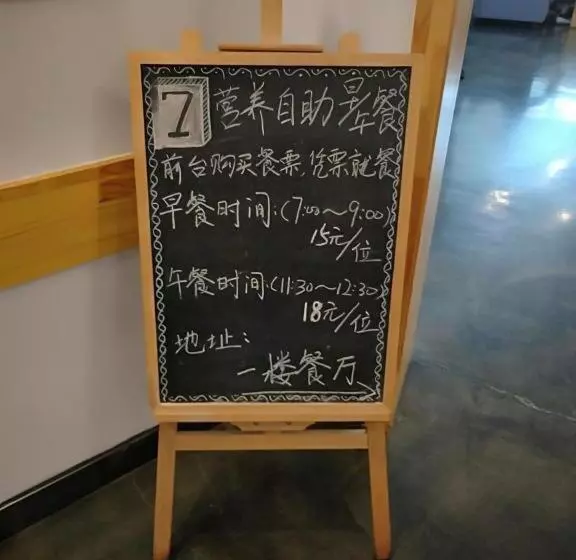 7 营养自助早午餐
前台购买餐票,凭票就餐
早餐时间:(7:00~9:00)
15元/位
午餐时间:(11:30~12:30)
18元/位
地址:
一楼餐厅